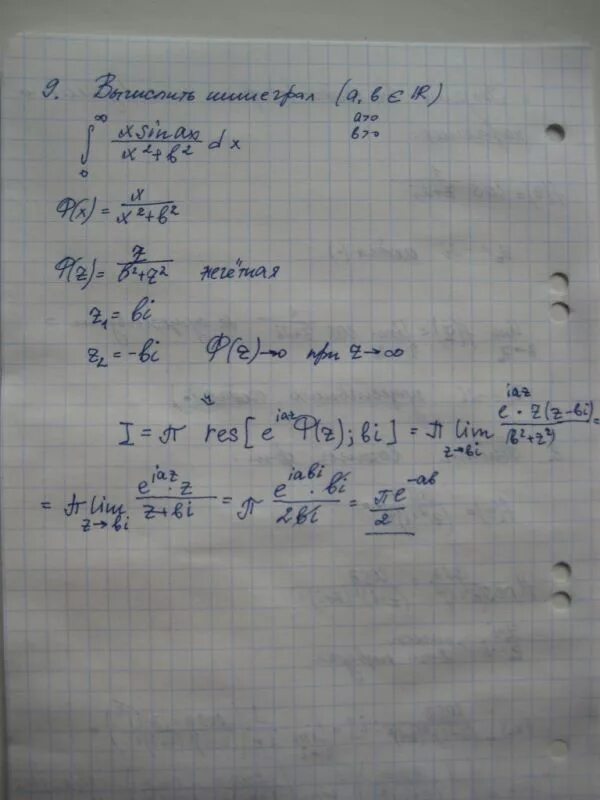 9. Вычислить интеграл (a, b ∈ ℝ)
a>0
b>0
∫₀^∞ (x sin ax)/(x² + b²) dx
Φ(x) = x/(x² + b²)
Φ(z) = z/(b² + z²) нечётная
z₁ = bi
z₂ = -bi Φ(z) → 0 при z → ∞
I = π res[e^{iaz} Φ(z); bi] = π lim_{z→bi} (e^{iaz} · z(z - bi))/(b² + z²) =
= π lim_{z→bi} (e^{iaz} · z)/(z + bi) = π (e^{iabi} · bi)/(2bi) = πe^{-ab}/2